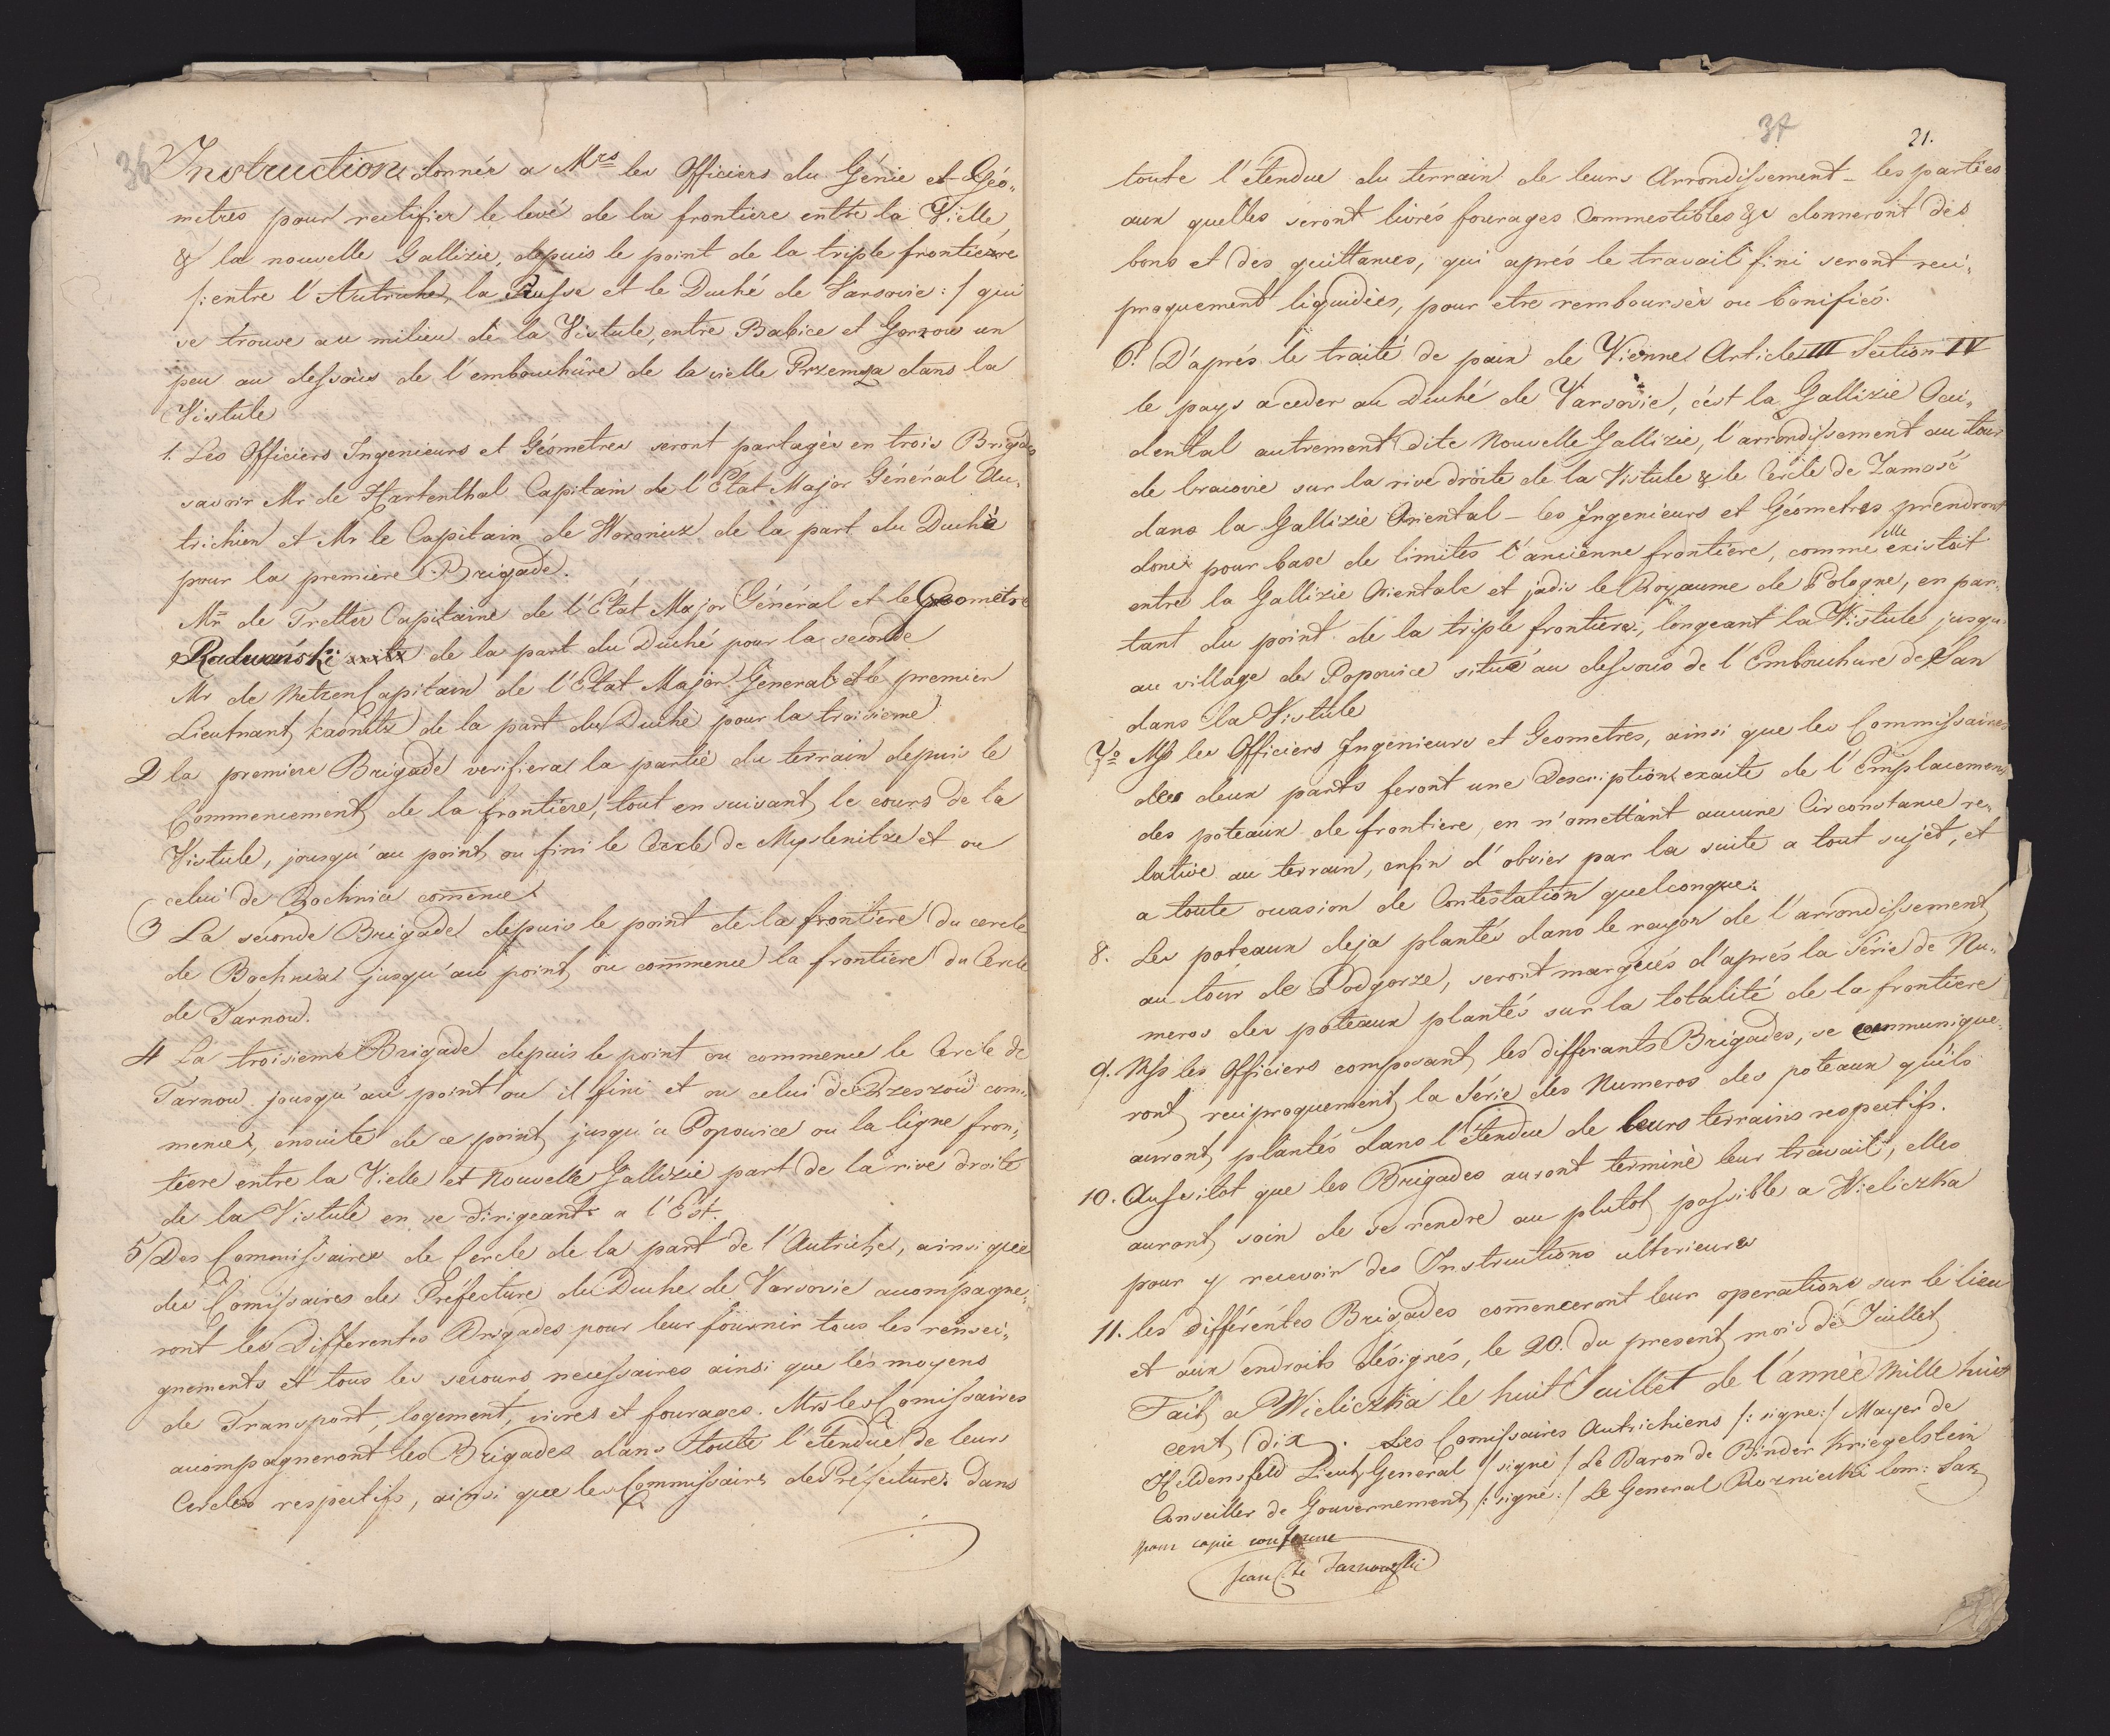 36
Instruction donnée a Mrs les Officiers du Génie et Géo„
metres pour rectifier le levé de la frontiere entre la Vielle
& la nouvelle Gallizie, depuis le point de la triple frontiere
/: entre l'Autriche, la Russe et le Duché de Varsovie :/ qui
se trouve au milieu de la Vistule, entre Babice et Gorzow un
peu au dessous de l'embouchûre de la vielle Przemza dans la
Vistule
1. Les Officiers Ingenieurs et Géometres seront partagès en trois Brigades
savoir Mr de Hartenthal Capitain de l'Etat Major Général Au„
trichien et Mr le Capitain de Woronicz de la part du Duché
pour la premiere Brigade.
Mr de Tretter Capitaine de l'État Major Général et le Geometre
Radwański de la part du Duché pour la seconde
Mr de Metzen Capitain de l'Etat Major General et le premier
Lieutnant de la part du Duché pour la troisieme
2 la premiere Brigade verifiera la partie du terrain depuis le
Commencement de la frontiere, tout en suivant le cours de la
Vistule, jousqu'au point ou fini le Cercle de Myslenitze et ou
celui de Bochnia comence
3 La seconde Brigade depuis le point de la frontiere du cercle
de Bochnia jusqu'au point ou comence la frontiere du Cercle
de Tarnow.
4 La troisieme Brigade depuis le point ou commence le Cercle de
Tarnow jousqu'au point ou il fini et ou celui de Rzeszów com„
mence, ensuite de ce point jusqu'a Popowice ou la ligne fron„
tiere entre la Vielle et Nouvelle Gallizie part de la rive droite
de la Vistule en se dirigeant a l'Est.
5/ Des Commissaires de Cercle de la part de l'Autriche, ainsi que
des Comissaires de Préfecture du Duché de Varsovie accompagne„
ront les Differentes Brigades pour leur fournir tous les rensei„
gnements et tous les secours necessaires ainsi que les moyens
de Transport, logement, vivres et fourages. Mrs les Comissaires
accompagneront les Brigades dans toute l'étendue de leurs
Cercles respectifs, ainsi que les Commissaires de Préfecture dans
37
21.
toute l'étendue du terrain de leurs Arrondissement – les parties
aux quelles seront livrés fourages Commestibles &c donneront des
bons et des quittances, qui aprés le travail fini seront reci„
proquement liquidiés, pour etre remboursés ou bonifiés.
6. D'aprés le traité de paix de Vienne Article III Section IV
le pays a ceder au Duché de Varsovie, c'est la Gallizie Occi„
dental autrement dite Nouvelle Gallizie, l'arrondissement au tour
de Cracovie sur la rive droite de la Vistule & le Cercle de Zamosé
dans la Gallizie Oriental – les Ingenieurs et Géometres prendront
donc pour base de limites l'ancienne frontiere, comme elle existoit
entre la Gallizie Orientale et jadis le Royaume de Pologne, en par„
tant du point de la triple frontiere, longeant la Vistule jusqu
au village de Popowice situé au dessous de l'Embouchure de San
dans la Vistule
7o Mss les Officiers Ingenieurs et Geometres, ainsi que les Commissaires
des deux parts feront une Description exacte de l'Emplacement
des poteaux de frontiere, en n'omettant aucune Circonstance re„
lative au terrain, enfin d'obvier par la suite a tout sujet, et
a toute occasion de Contestation quelconque.
8. Les poteaux deja plantés dans le rayon de l'arrondissement
au tour de Podgorze, seront marqués d'aprés la Série de Nu„
meros des poteaux plantés sur la totalité de la frontiere
9. Mss les Officiers composant les differants Brigades, se communique„
ront reciproquement la Série des Numeros des poteaux qu'ils
auront plantés dans l'étendue de leurs terrains respectifs.
10. Aussitot que les Brigades auront terminè leur travail, elles
auront soin de se rendre au plutot possible a Wieliczka
pour y recevoir des Instructions ulterieures
11. les différentes Brigades comenceront leur operations sur le lieu
et aux endroits désignés, le 20. du present mois de Juillet
Fait a Wieliczka le huit Juillet de l'année Mille huit
cent dix. Les Comissaires Autrichiens /: signé :/ Mayer de
Heldensfeld Lieut General / signé / Le Baron de Binder Kriegelstein
Conseiller de Gouvernement /: signé :/ Le General Rozniecki Com:
pour copie conforme
Jean Tarnowski